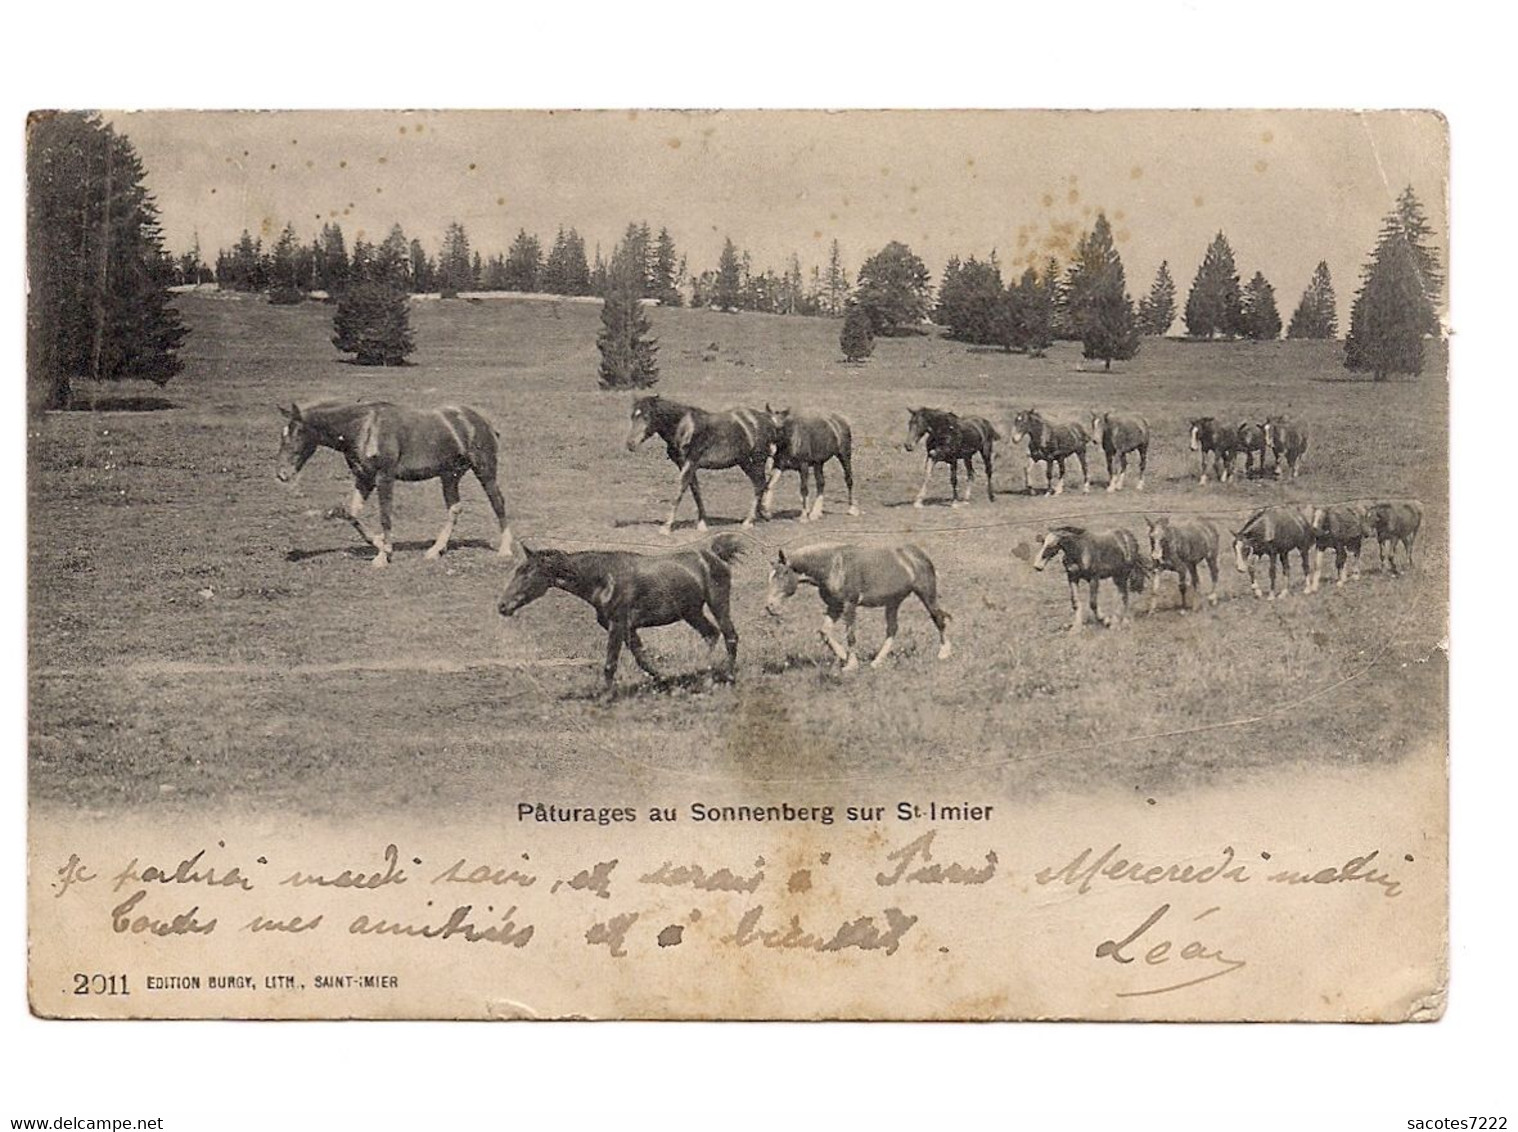 Pâturages au Sonnenberg sur St-Imier
Je partirai mardi soir, et serai à Paris Mercredi matin
Toutes mes amitiés et à bientôt.
Léon
2011 EDITION BURGY, LITH., SAINT-IMIER
www.delcampe.net
sacotes7222